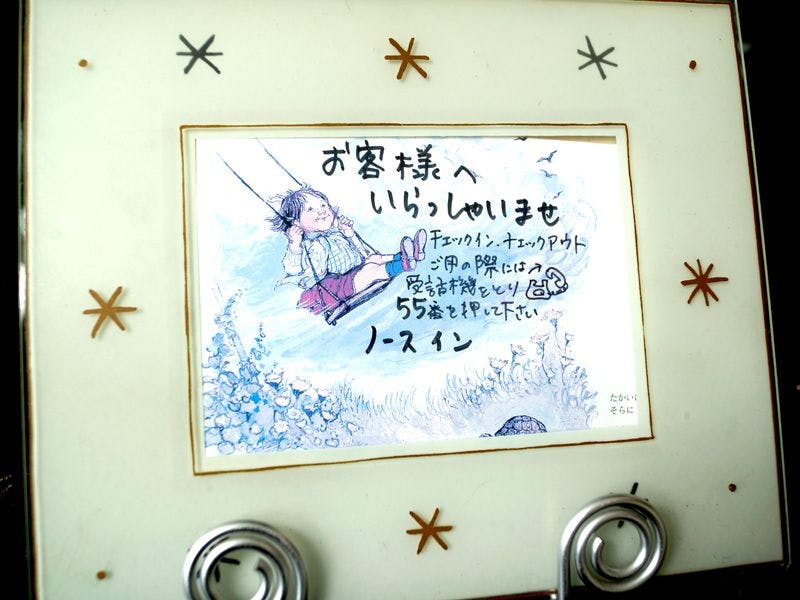 お客様へ
いらっしゃいませ
チェックイン.チェックアウト
ご用の際には
受話機をとり
55番を押して下さい
ノースイン
たかい
そらに